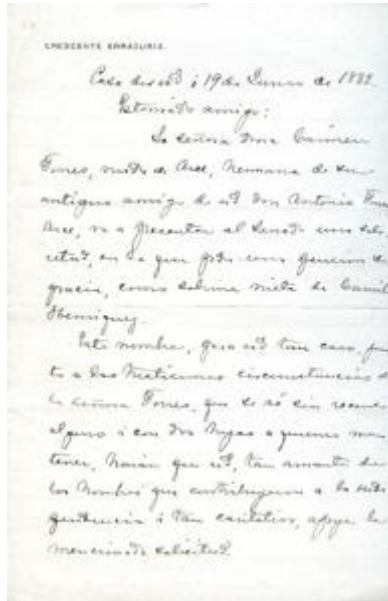 CRESCENTE ERRÁZURIZ
Casa de ud i 19 de Junio de 1882
Estimado amigo:
La señora Doña Cármen
Torres, viuda de Arce, hermana de su
antiguo amigo de ud don Antonio Torres
Arce, va a presentar al Senado una soli
citud, en la que pide una pension de
gracia, como sobrina nieta de Camilo
Henriquez.
Este nombre, para ud tan caro, jun
to a las tristísimas circunstancias de
la señora Torres, que se vé sin recurso
alguno i con dos hijas a quienes man
tener, harán que ud, tan amante de
los hombres que contribuyeron a la inde
pendencia i tan caritativo, apoye la
mencionada solicitud.